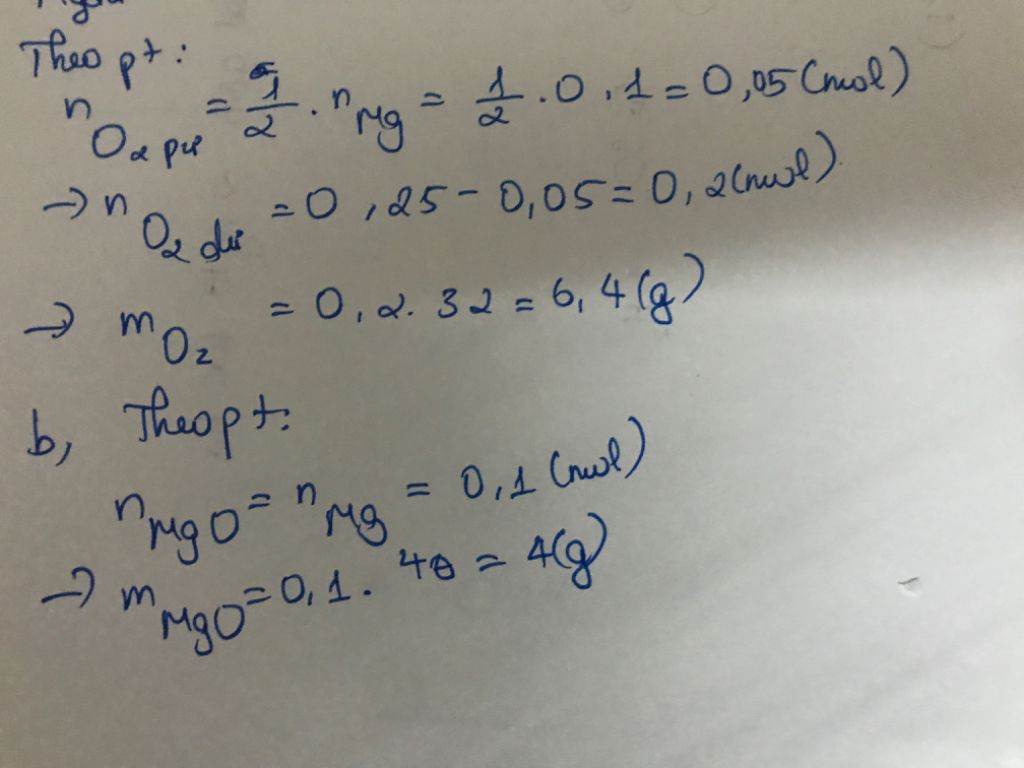 Theo pt:
n O2 pư = 1/2 . n Mg = 1/2 . 0,1 = 0,05 (mol)
→ n O2 dư = 0,25 - 0,05 = 0,2 (mol)
→ m O2 = 0,2 . 32 = 6,4 (g)
b, Theo pt:
n MgO = n Mg = 0,1 (mol)
→ m MgO = 0,1 . 40 = 4 (g)